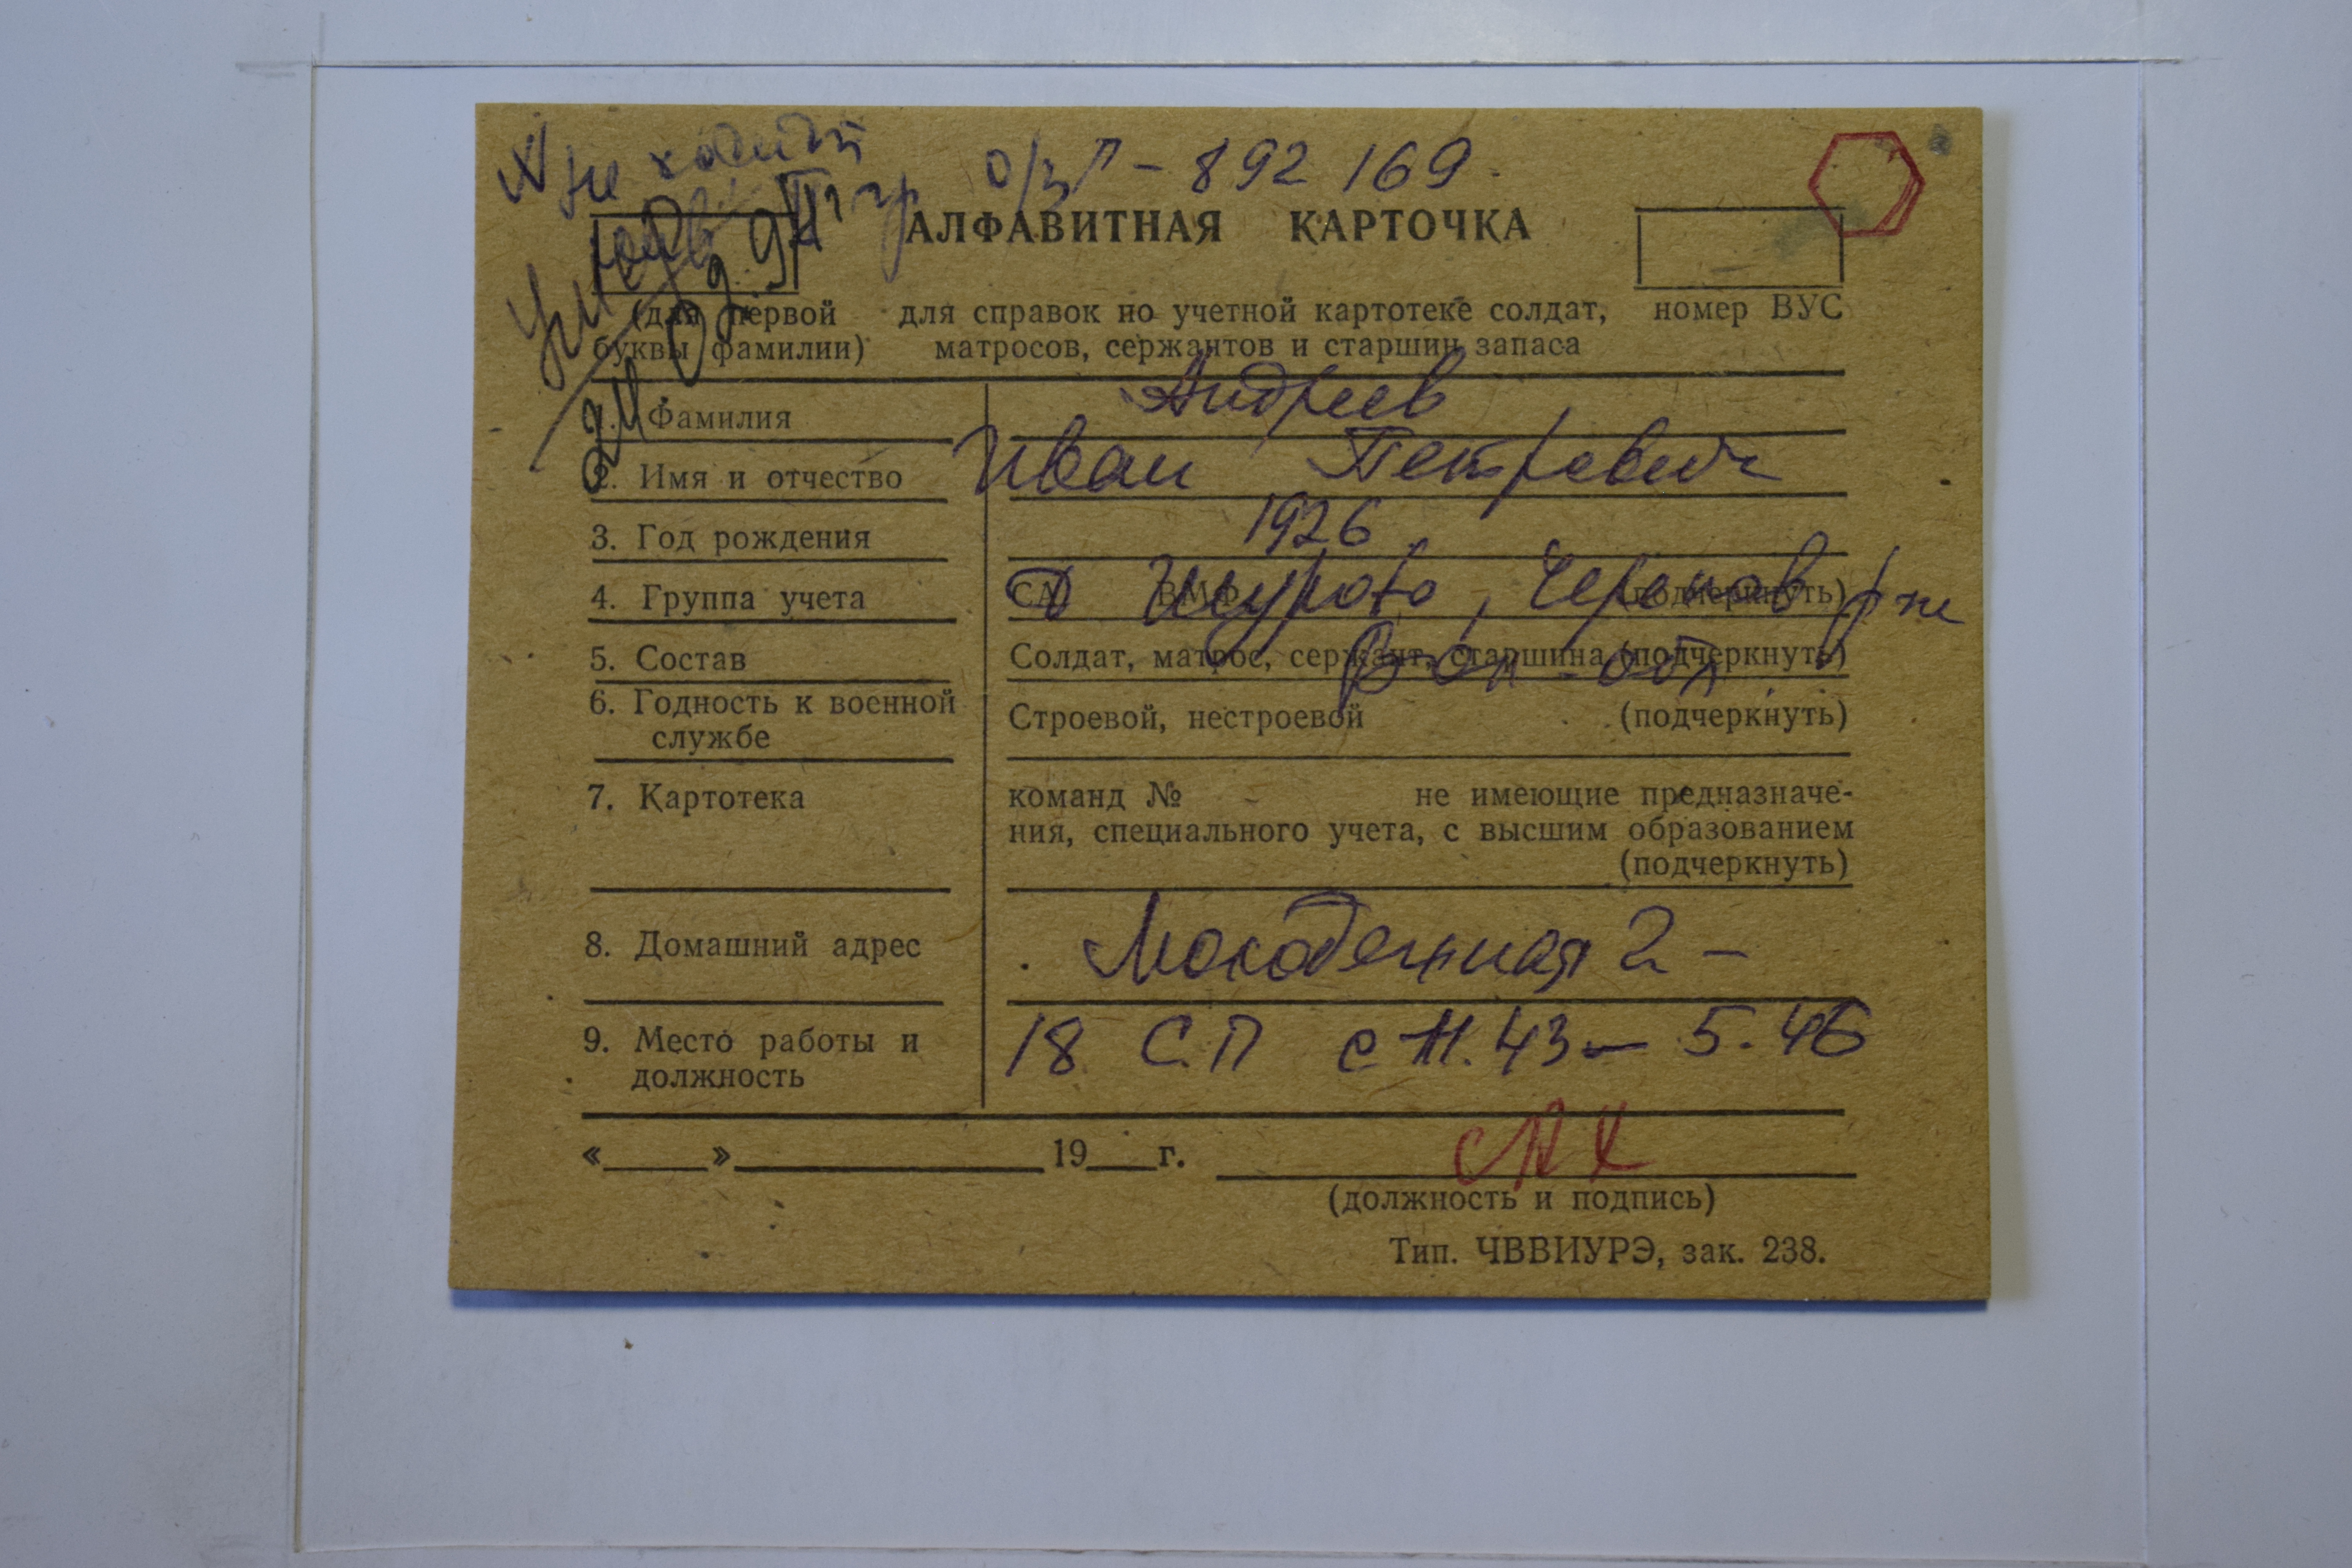 не ходит
II гр
О/з Г - 892 169
АЛФАВИТНАЯ КАРТОЧКА
(для первой буквы фамилии)
для справок по учетной картотеке солдат,
матросов, сержантов и старшин запаса
номер ВУС
1. Фамилия Андреев
2. Имя и отчество Иван Петрович
3. Год рождения 1926
4. Группа учета СА, ВМФ (подчеркнуть)
Д Шурово, Черепов р-не
5. Состав Солдат, матрос, сержант, старшина (подчеркнуть)
Вол-обл
6. Годность к военной Строевой, нестроевой (подчеркнуть)
службе
7. Картотека команд № не имеющие предназначе-
ния, специального учета, с высшим образованием
(подчеркнуть)
8. Домашний адрес Молодежная 2 -
9. Место работы и 18 С.П с 11.43 - 5.46
должность
«____»____________19___г.
(должность и подпись)
Тип. ЧВВИУРЭ, зак. 238.